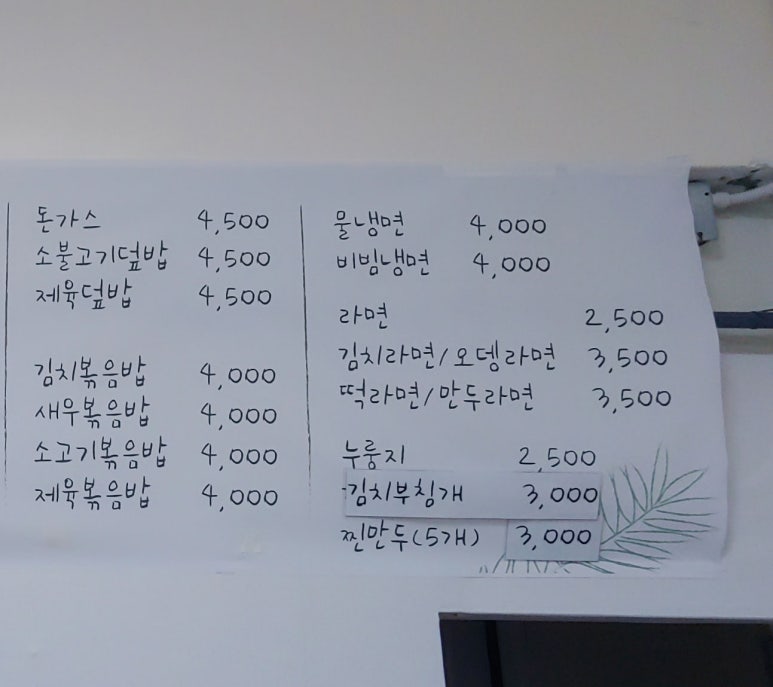 돈가스 4,500
소불고기덮밥 4,500
제육덮밥 4,500
김치볶음밥 4,000
새우볶음밥 4,000
소고기볶음밥 4,000
제육볶음밥 4,000
물냉면 4,000
비빔냉면 4,000
라면 2,500
김치라면/오뎅라면 3,500
떡라면/만두라면 3,500
누룽지 2,500
김치부침개 3,000
찐만두(5개) 3,000